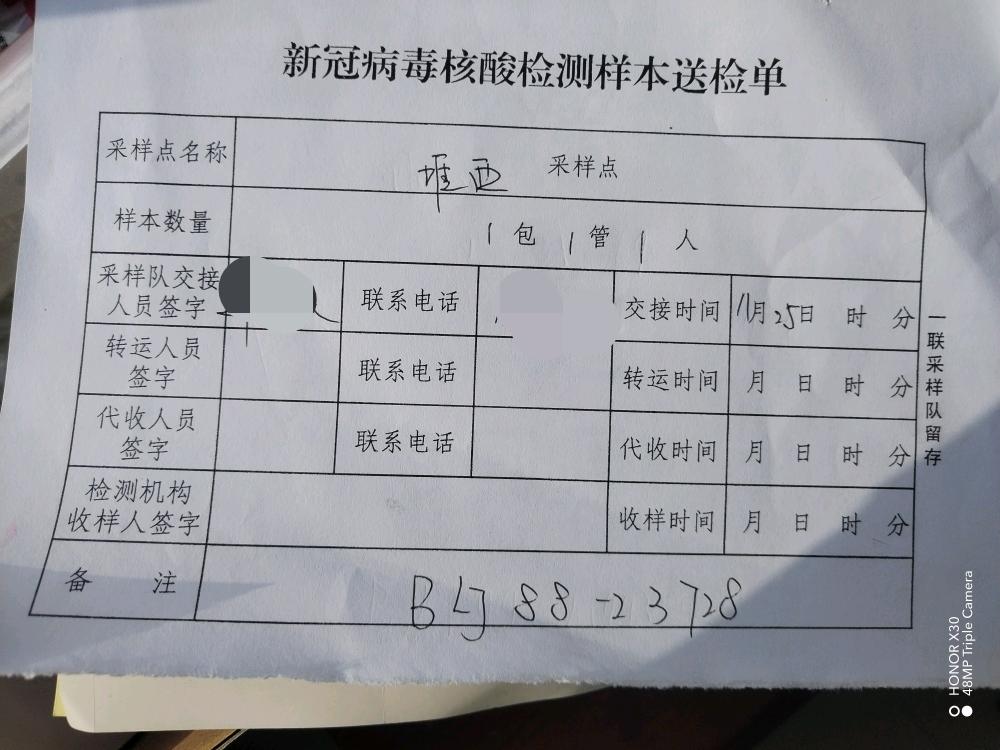 新冠病毒核酸检测样本送检单
采样点名称 堆西 采样点
样本数量 1 包 1 管 1 人
采样队交接
人员签字 联系电话 交接时间 11月25日 时 分
转运人员
签字 联系电话 转运时间 月 日 时 分
代收人员
签字 联系电话 代收时间 月 日 时 分
检测机构
收样人签字 收样时间 月 日 时 分
备 注 BLJ88-23728
一联采样队留存
HONOR X30
48MP Triple Camera